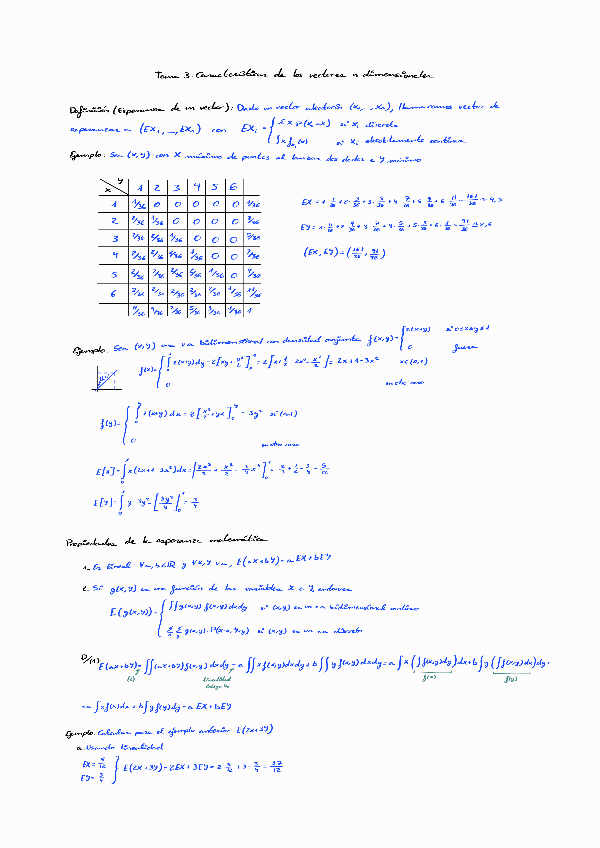 Tema 3: Características de los vectores n dimensionales
Definición (Esperanza de un vector): Dado un vector aleatorio (X₁, .., Xₙ), llamaremos vector de
esperanzas a (EX₁, ..., EXₙ) con EXᵢ = { Σ x P(Xᵢ = x) si Xᵢ discreta
∫ x f_{Xᵢ}(x) si Xᵢ absolutamente continua
Ejemplo: Sea (X, Y) con X máximo de puntos al lanzar dos dados e Y mínimo
x y 1 2 3 4 5 6
1 1/36 0 0 0 0 0 1/36
2 2/36 1/36 0 0 0 0 3/36
3 2/36 2/36 1/36 0 0 0 5/36
4 2/36 2/36 2/36 1/36 0 0 7/36
5 2/36 2/36 2/36 2/36 1/36 0 9/36
6 2/36 2/36 2/36 2/36 2/36 1/36 11/36
11/36 9/36 7/36 5/36 3/36 1/36 1
(EX, EY) = (161/36, 91/36)
Ejemplo: Sea (X, Y) una v.a. bidimensional con densidad conjunta f(x,y) = { 2(x+y) si 0≤x≤y≤1
0 fuera
f(x) = { ∫ 2(x+y) dy = 2[xy + y²/2] = 2x + 1 - 3x² x∈(0,1)
0 en otro caso
f(y) = { ∫ 2(x+y) dx = 2[x²/2 + yx] = 3y²
0 en otro caso
E[X] = ∫ x(2x+1-3x²) dx = [2x³/3 + x²/2 - 3/4 x⁴] = 2/3 + 1/2 - 3/4 = 5/12
E[Y] = ∫ y · 3y² = [3y⁴/4] = 3/4
Propiedades de la esperanza matemática
1. Es lineal: ∀a, b∈ℝ y ∀X, Y v.a., E(aX+bY) = a EX + b EY
2. Si g(X, Y) es una función de las variables X e Y, entonces
E(g(X,Y)) = { ∫∫ g(x,y) f(x,y) dxdy si (X,Y) es v.a. bidimensional continua
Σ Σ g(x,y) · P(X=x, Y=y) si (X,Y) es v.a. discreta
D/(1) E(aX+bY) = ∫∫ (ax+by) f(x,y) dxdy = a ∫∫ x f(x,y) dxdy + b ∫∫ y f(x,y) dxdy = a ∫ x (∫ f(x,y) dy) dx + b ∫ y (∫ f(x,y) dx) dy =
(2) linealidad f(x) f(y)
= a ∫ x f(x) dx + b ∫ y f(y) dy = a EX + b EY
Ejemplo: Calcular para el ejemplo anterior E(2X+3Y)
a. Usando linealidad
EX = 5/12
EY = 3/4 } E(2X+3Y) = 2EX + 3EY = 2 · 5/12 + 3 · 3/4 = 37/12